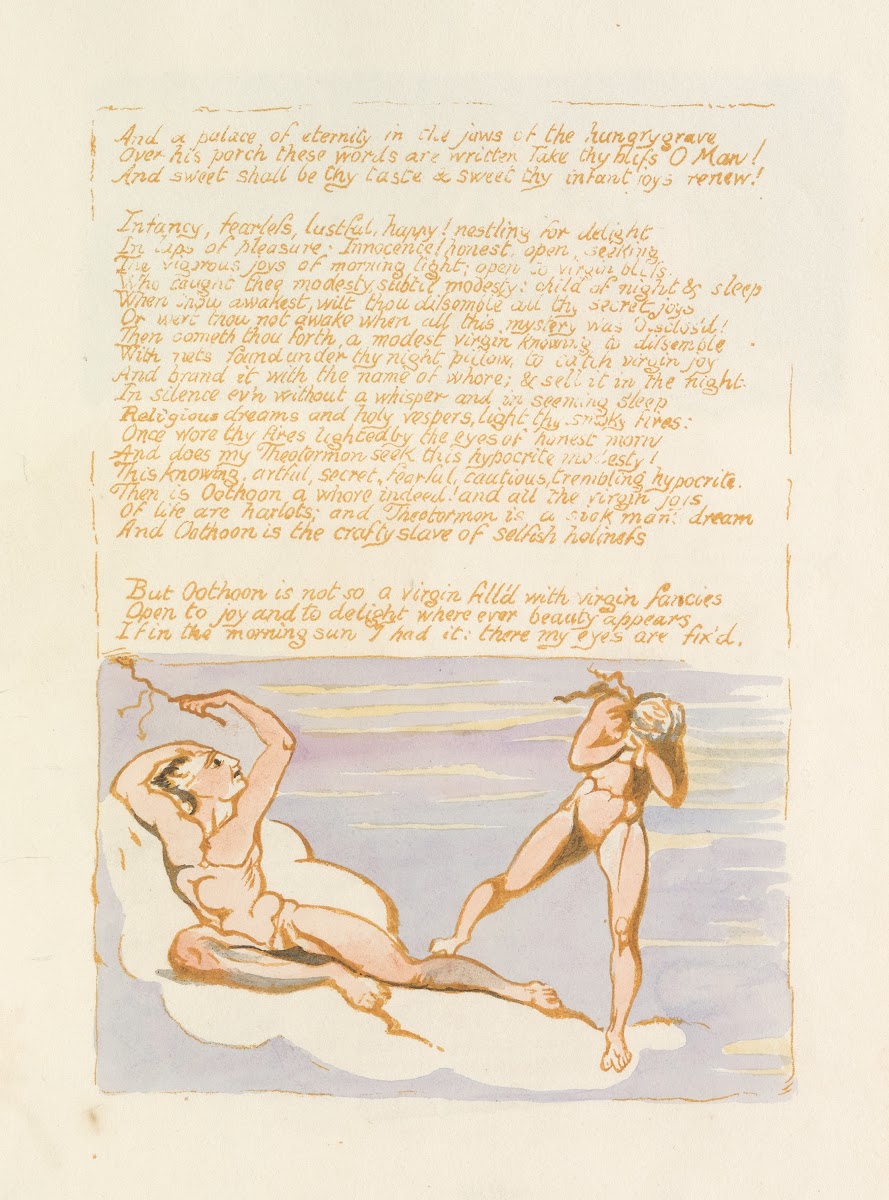 And a palace of eternity in the jaws of the hungry grave
Over his porch these words are written Take thy bliſs O Man!
And sweet shall be thy taste & sweet thy infant joys renew!
Infancy, fearleſs, lustful, happy! nestling for delight
In laps of pleasure; Innocence! honest, open, seeking
The vigorous joys of morning light; open to virgin bliſs.
Who taught thee modesty, subtil modesty; child of night & sleep
When thou awakest, wilt thou diſsemble all thy secret joys
Or wert thou not awake when all this mystery was disclos'd!
Then com'st thou forth, a modest virgin knowing to diſsemble
With nets found under thy night pillow, to catch virgin joy
And brand it with the name of whore; & sell it in the night.
In silence ev'n without a whisper and in seeming sleep
Religious dreams and holy vespers, light thy smoky fires:
Once were thy fires lighted by the eyes of honest morn
And does my Theotormon seek this hypocrite modesty!
This knowing, artful, secret, fearful, cautious, trembling hypocrite.
Then is Oothoon a whore indeed! and all the virgin joys
Of life are harlots; and Theotormon is a sick mans dream
And Oothoon is the crafty slave of selfish holineſs
But Oothoon is not so a virgin fill'd with virgin fancies
Open to joy and to delight where ever beauty appears
If in the morning sun I had it; there my eyes are fix'd.